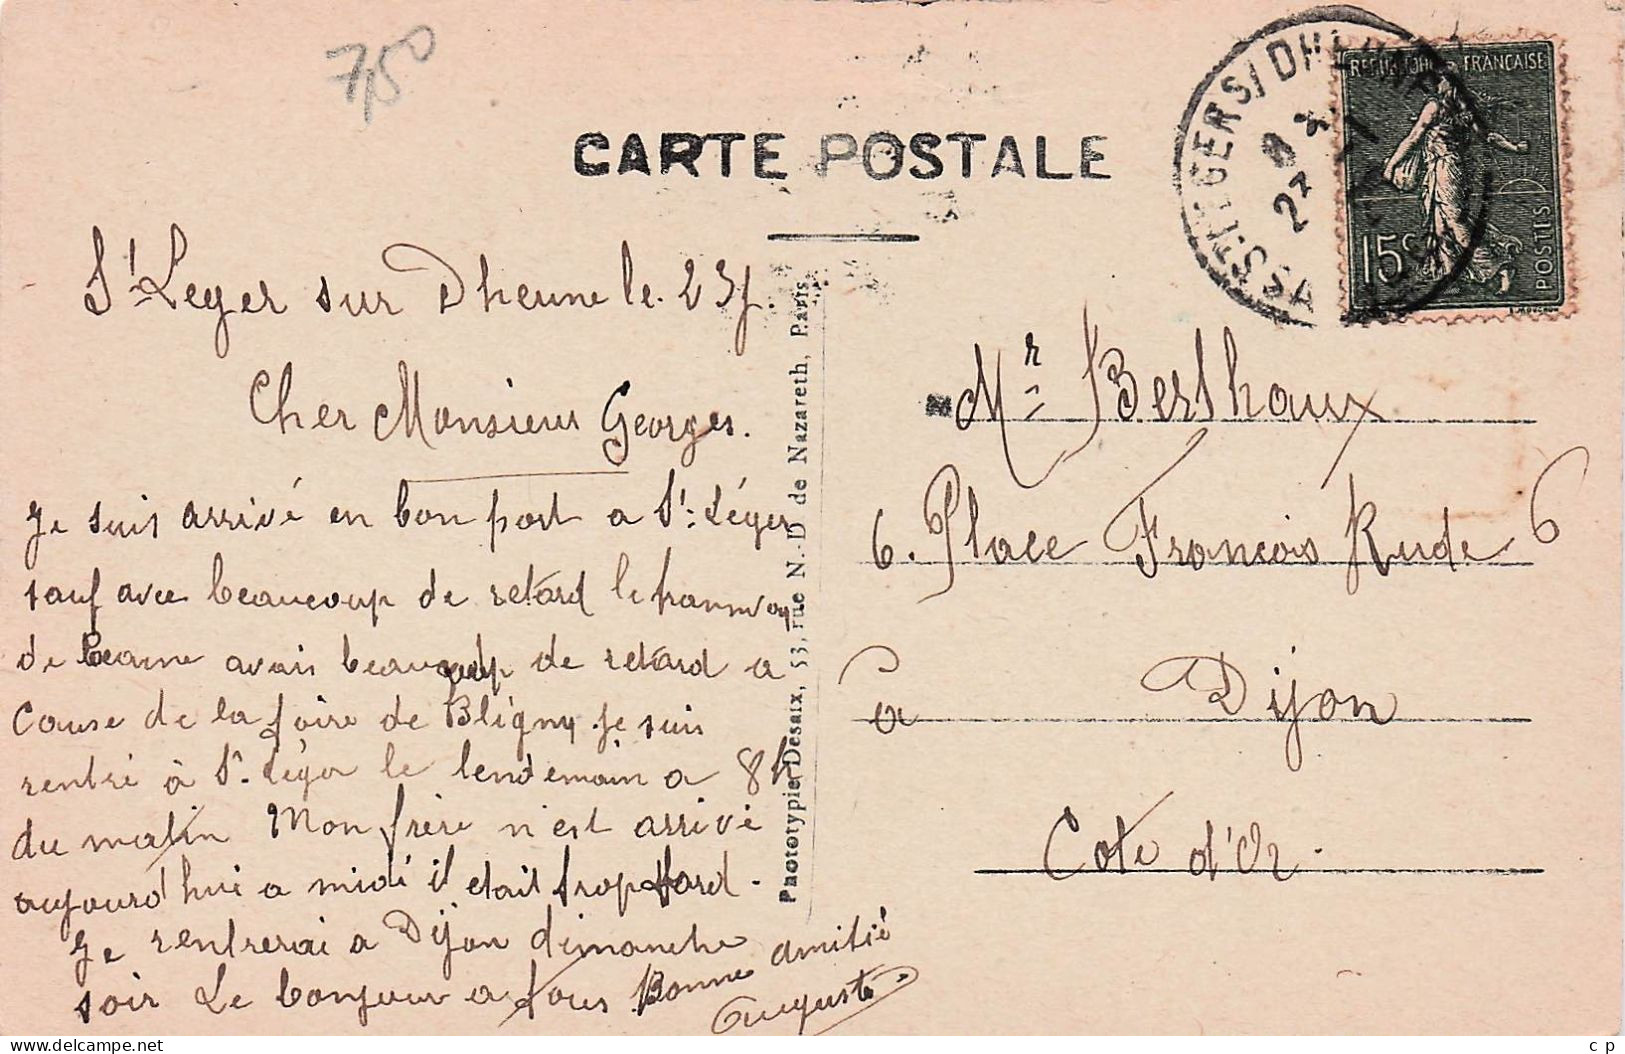 7,50
CARTE POSTALE
REPUBLIQUE FRANÇAISE
15c
POSTES
St Leger sur Dheune le. 23
Cher Monsieur Georges.
Je suis arrivé en bon port a St: Léger
sauf avec beaucoup de retard le tramway
de Beaune avais beaucoup de retard a
Cause de la foire de Bligny je suis
rentré à St. Léger le lendemain a 8h
du matin Mon frère n'est arrivé
aujourd'hui a midi il etait trop tard.
Je rentrerai a Dijon dimanche
soir Le bonjour a tous Bonne amitié
Auguste
Phototypie Desaix, 53, rue N.-D. de Nazareth, Paris
Mr Berthaux
6. Place François Rude 6
a Dijon
Cote d'Or.
delcampe.net
c p